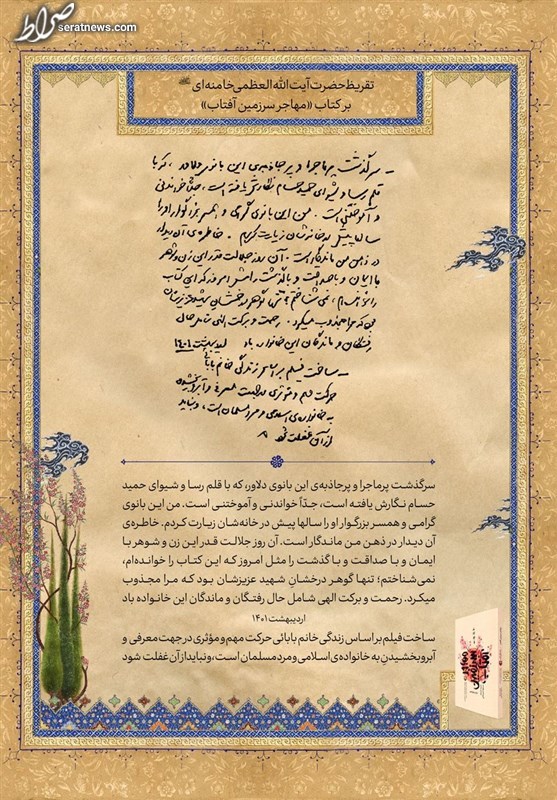 صراط
seratnews.com
تقریظ حضرت آیت الله العظمی خامنه‌ای
بر کتاب «مهاجر سرزمین آفتاب»
ـ سرگذشت پرماجرا و پرجاذبه‌ی این بانوی دلاور، که با
قلم رسا و شیوای حمید حسام نگارش یافته است، جدّاً خواندنی
و آموختنی است. من این بانوی گرامی و همسر بزرگوار او را
سالها پیش در خانه‌شان زیارت کردم. خاطره‌ی آن دیدار
در ذهن من ماندگار است. آن روز جلالت قدر این زن و شوهر
با ایمان و با صداقت و با گذشت را مثل امروز که این کتاب
را خوانده‌ام، نمی‌شناختم؛ تنها گوهر درخشان شهید عزیزشان
بود که مرا مجذوب میکرد. رحمت و برکت الهی شامل حال
رفتگان و ماندگان این خانواده باد اردیبهشت ۱۴۰۱
ـ ساخت فیلم بر اساس زندگی خانم بابائی
حرکت مهم و مؤثری در جهت معرفی و آبرو بخشیدن
به خانواده‌ی اسلامی و مرد مسلمان است، و نباید
از آن غفلت شود
سرگذشت پرماجرا و پرجاذبه‌ی این بانوی دلاور، که با قلم رسا و شیوای حمید
حسام نگارش یافته است، جدّاً خواندنی و آموختنی است. من این بانوی
گرامی و همسر بزرگوار او را سالها پیش در خانه‌شان زیارت کردم. خاطره‌ی
آن دیدار در ذهن من ماندگار است. آن روز جلالت قدر این زن و شوهر با
ایمان و با صداقت و با گذشت را مثل امروز که این کتاب را خوانده‌ام،
نمی‌شناختم؛ تنها گوهر درخشانِ شهید عزیزشان بود که مرا مجذوب
میکرد. رحمت و برکت الهی شامل حال رفتگان و ماندگان این خانواده باد
اردیبهشت ۱۴۰۱
ساخت فیلم بر اساس زندگی خانم بابائی حرکت مهم و مؤثری در جهت معرفی و
آبرو بخشیدن به خانواده‌ی اسلامی و مرد مسلمان است، و نباید از آن غفلت شود